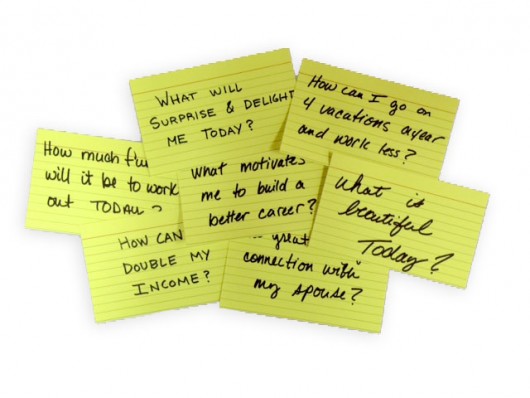 WHAT WILL
SURPRISE & DELIGHT
ME TODAY?
How can I go on
4 vacations a year
and work less?
How much fu
will it be to work
out TODAY ?
What motivates
me to build a
better career?
What is
beautiful
Today?
HOW CAN
DOUBLE MY
INCOME?
great
connection with
my spouse?